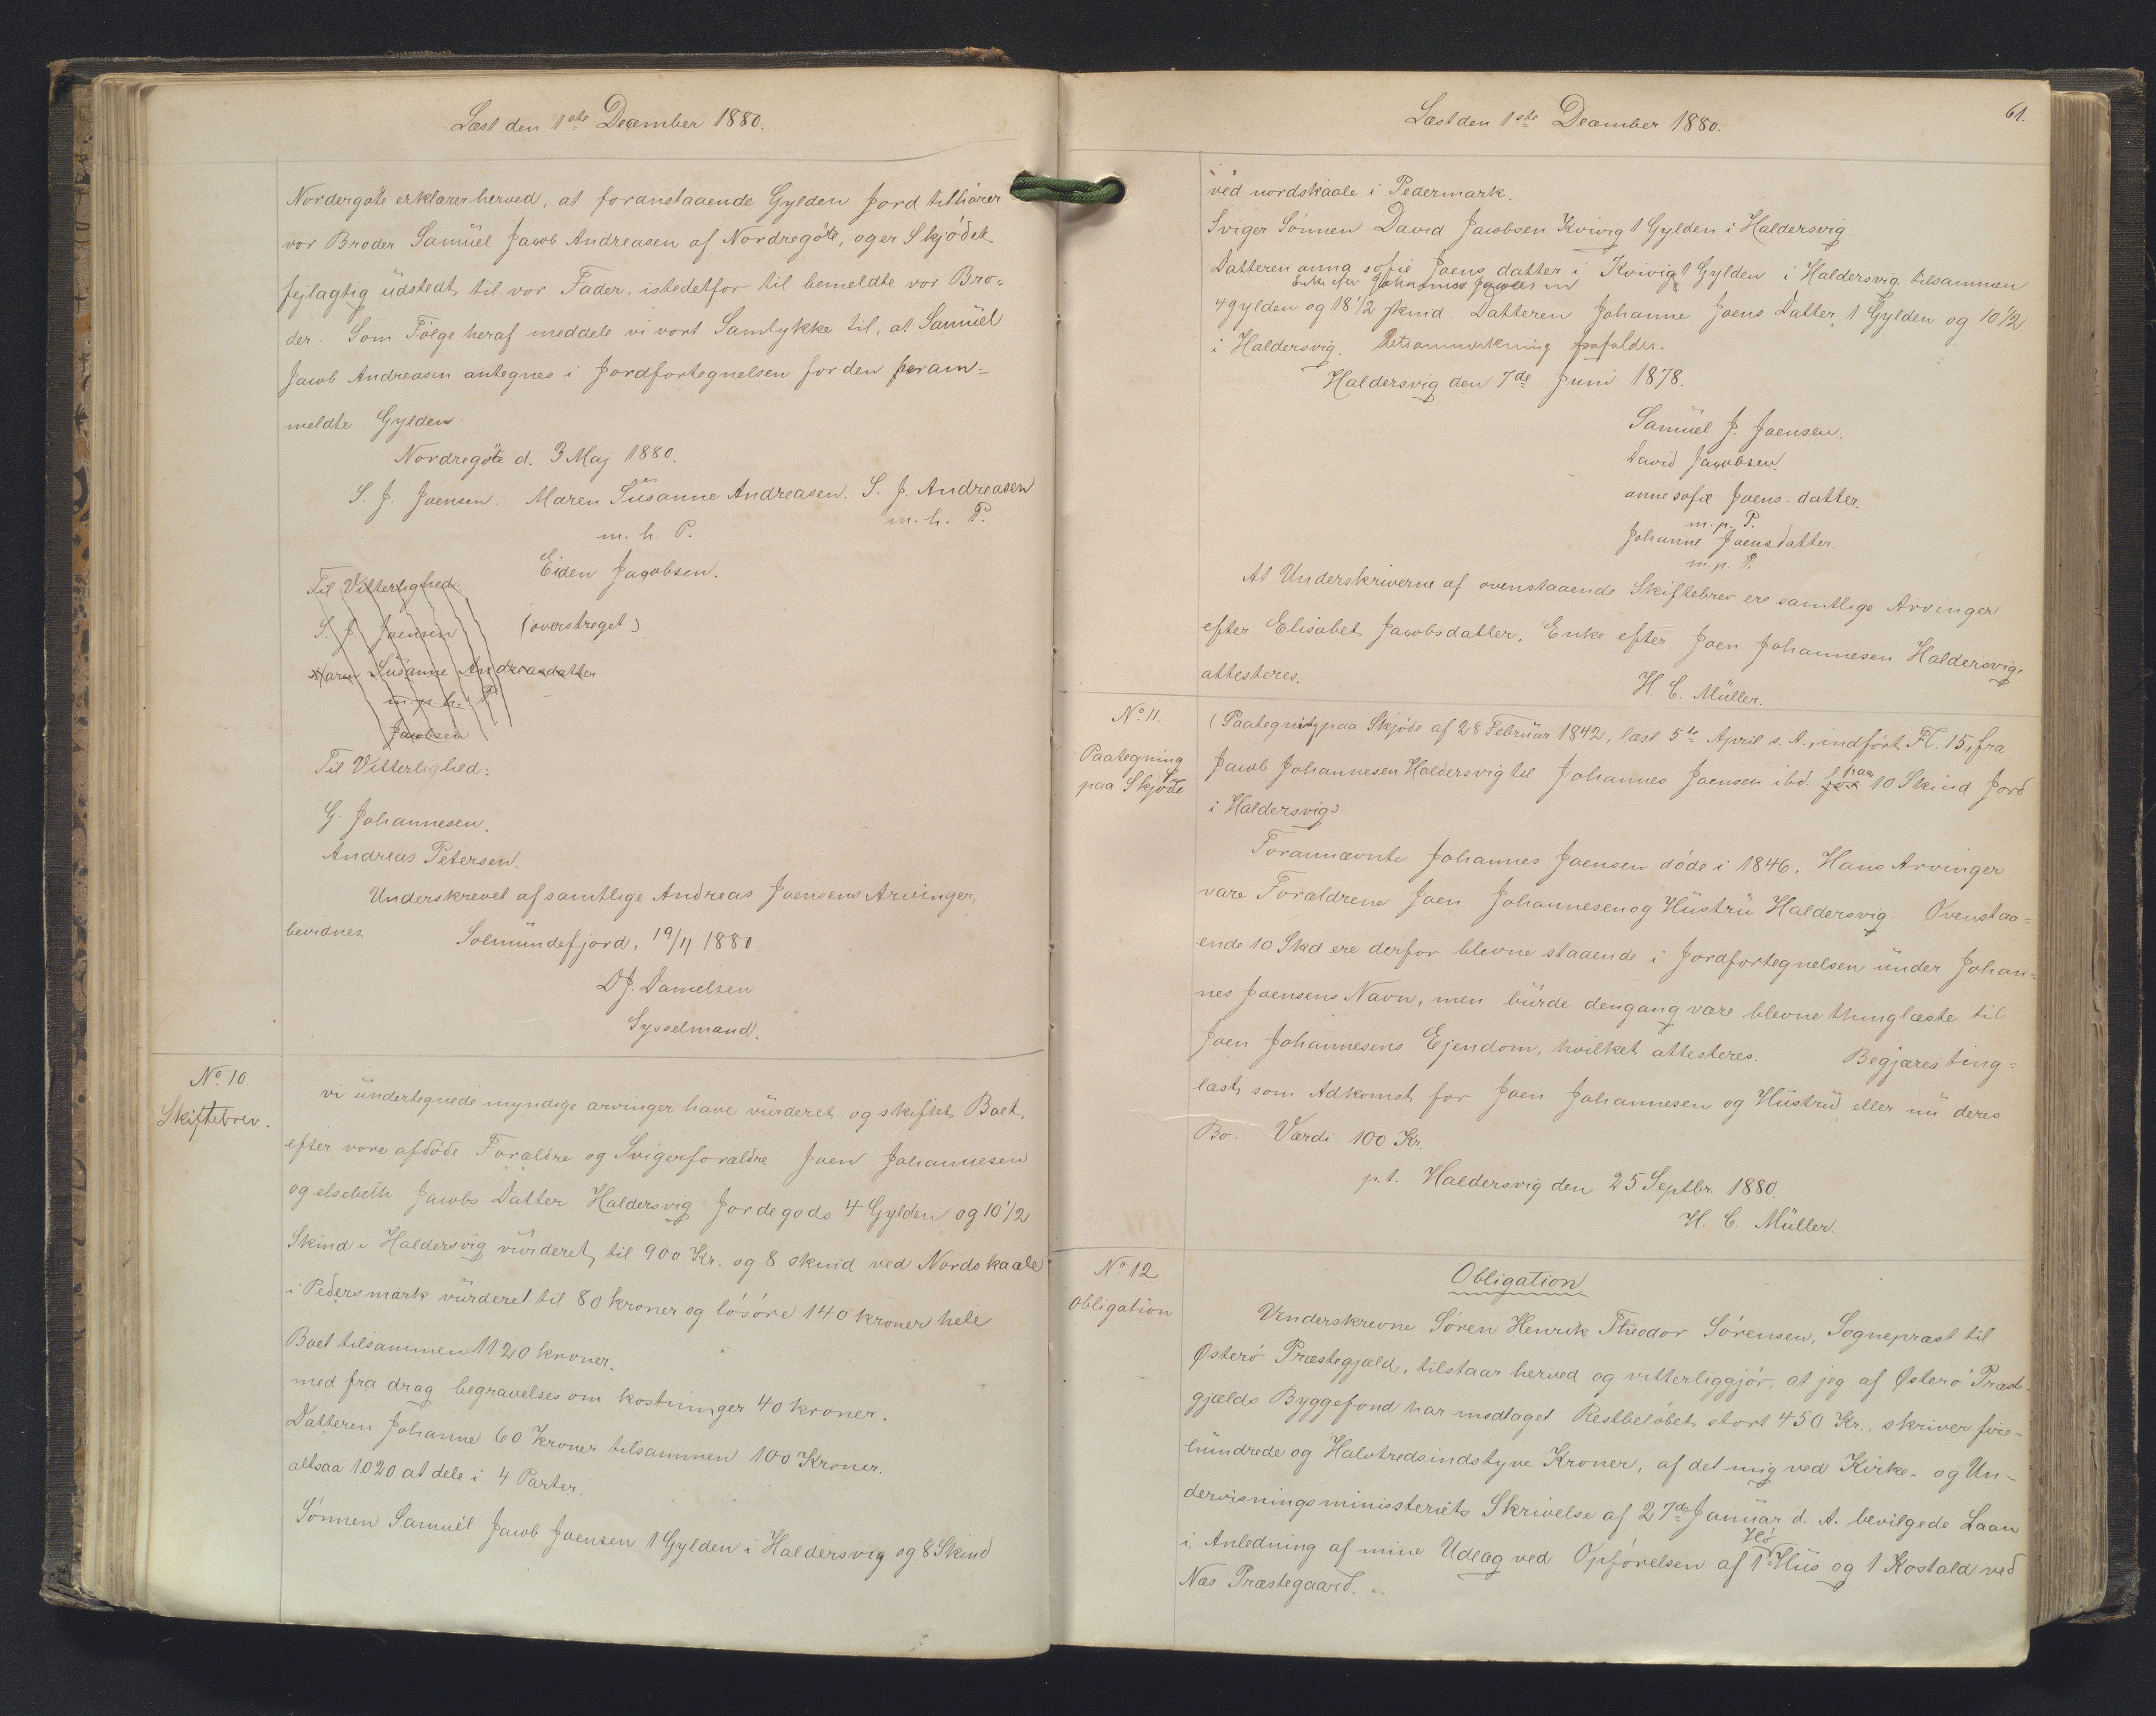 Læst den 1ste December 1880.
Nordergøte erklærer herved, at foranstaaende Gylden Jord tilhører
vor Broder Samüel Jacob Andreasen af Nordregøte, og er Skjødet
fejlagtig üdstedt til vor Fader. istedetfor til bemeldte vor Bro=
der. Som Følge heraf meddele vi vort Samtykke til, at Samüel
Jacob Andreasen antegnes i Jordfortegnelsen for den foran=
meldte Gylden.
Nordregøte d. 3 Maj 1880.
S. J. Joensen. Maren Süsanne Andreasen. S. J. Andreasen
m. h. P.
m. h. P.
Eiden Jacobsen.
Til Vitterlighed:
S. J. Joensen (overstreget)
Maren Süsanne Andreasdatter
m. p. h. P.
Jacobsen
Til Vitterlighed:
G. Johannesen.
Andreas Petersen.
Underskrevet af samtlige Andreas Joensens Arvinger,
bevidnes.
Solmündefjord, 19/11 1880.
D J. Danielsen
Sysselmand.
No. 10.
Skiftebrev.
vi ündertegnede myndige arvinger have vürderet og skiftet Boet,
efter vore afdøde Forældre og Svigerforældre Joen Johannesen
og elsebeth Jacobs Datter Haldersvig Jordegods 4 Gylden og 10 1/2
Skind i Haldersvig vürderet til 900 Kr. og 8 skind ved Nordskaale
i Pedersmark vürderet til 80 kroner og løsøre 140 kroner hele
Boet tilsammen 1120 kroner.
med fra drag begravelses om kostninger 40 kroner.
Datteren Johanne 60 Kroner tilsammen 100 Kroner.
altsaa 1020 at dele i 4 Parter.
Sønnen Samuel Jacob Joensen 1 Gylden i Haldersvig og 8 Skind
Læst den 1ste December 1880.
61.
ved nordskaale i Pedermark.
Sviger Sønnen David Jacobsen Kvivig 1 Gylden i Haldersvig.
Datteren anna sofie Joens datter i Kvivig 1 Gylden i Haldersvig tilsammen
Enke efter Johannes
4 gylden og 18 1/2 skind. Datteren Johanne Joens Datter 1 Gylden og 10 1/2
i Haldersvig. Retsanmærkning
Haldersvig den 7de Juni 1878.
Samüel J. Joensen.
David Jacobsen.
anne sofie Joens. datter.
m. p. P.
Johanne Joensdatter.
m. p. P.
At Underskriverne af ovenstaaende Skiftebrev ere samtlige Arvinger
efter Elisabet Jacobsdatter, Enke efter Joen Johannesen Haldersvig,
attesteres.
H. C. Müller.
No. 11.
Paategning
paa Skjøde
(Paategning paa Skjøde af 28 Februar 1842, læst 5te April s. A., indført Fl. 15, fra
Jacob Johannesen Haldersvig til Johannes Joensen ibd. for paa 10 Skind Jord
i Haldersvig)
Forannævnte Johannes Joensen døde i 1846. Hans Arvinger
vare Forældrene Joen Johannesen og Hüstrü Haldersvig. Ovenstaa=
ende 10 Skd ere derfor blevne staaende i Jordfortegnelsen ünder Johan=
nes Joensens Navn, men bürde dengang være blevne thinglæste til
Joen Johannesens Ejendom, hvilket attesteres. Begjæres ting=
læst som Adkomst for Joen Johannesen og Hüstrü eller nü deres
Bo. Værdi 100 Kr.
p. t. Haldersvig den 25 Septbr. 1880.
H. C. Müller.
No. 12
Obligation
Obligation
Underskrevne Søren Henrik Theodor Sørensen, Sognepræst til
Østerø Præstegjæld, tilstaar herved og vitterliggjør, at jeg af Østerø Præste-
gjælds Byggefond har modtaget Restbeløbet stort 450 Kr., skriver fire-
hündrede og Halvtredsindstyve Kroner, af det mig ved Kirke- og Un-
dervisningsministeriets Skrivelse af 27de Januar d. A. bevilgede Laan
Hø
i Anledning af mine Udlæg ved Opførelsen af 1 Hüs og 1 Kostald ved
Næs Præstegaard.